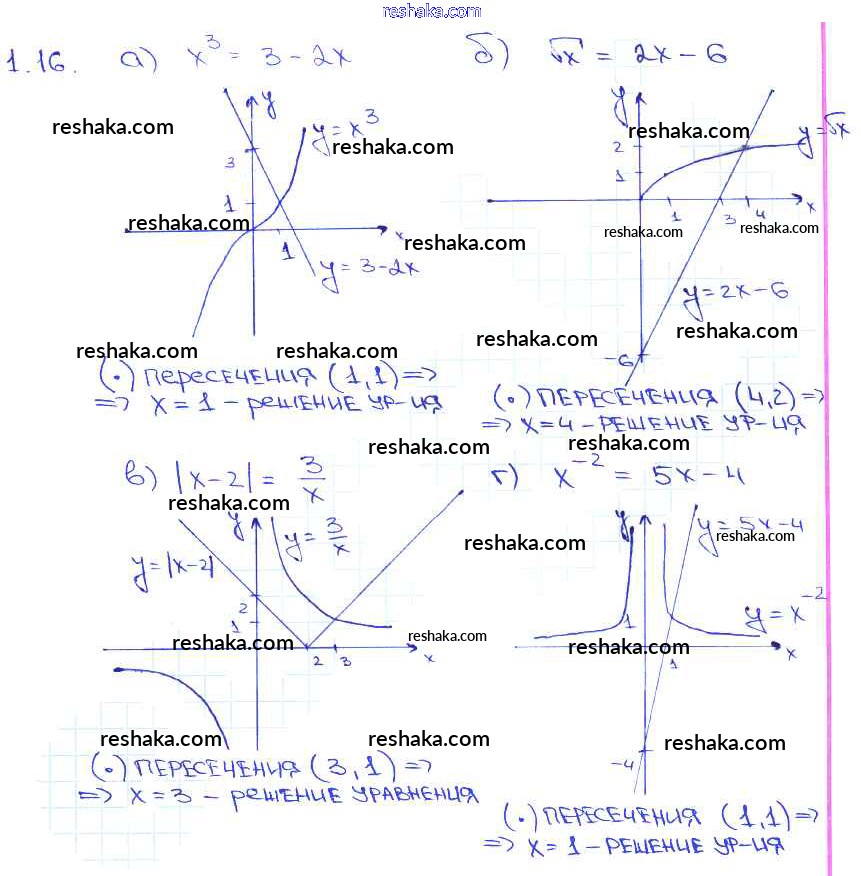 reshaka.com
1.16. а) x³ = 3 - 2x
б) √x = 2x - 6
y
y = x³
3
1
1
x
y = 3 - 2x
y
y = √x
2
1
1
3
4
x
y = 2x - 6
-6
reshaka.com
reshaka.com
reshaka.com
reshaka.com
reshaka.com
reshaka.com
reshaka.com
reshaka.com
reshaka.com
reshaka.com
reshaka.com
reshaka.com
(·) пересечения (1,1) =>
=> x = 1 - решение ур-ия
(·) ПЕРЕСЕЧЕНИЯ (4,2) =>
=> x = 4 - РЕШЕНИЕ УР-ИЯ
reshaka.com
reshaka.com
в) |x-2| = 3/x
г) x⁻² = 5x - 4
reshaka.com
y
y = 3/x
y = |x-2|
2
1
2
3
x
y
y = 5x - 4
y = x⁻²
1
1
x
-4
reshaka.com
reshaka.com
reshaka.com
reshaka.com
reshaka.com
reshaka.com
reshaka.com
reshaka.com
(·) ПЕРЕСЕЧЕНИЯ (3,1) =>
=> x = 3 - решение УРАВНЕНИЯ
(·) ПЕРЕСЕЧЕНИЯ (1,1) =>
=> x = 1 - РЕШЕНИЕ УР-ИЯ